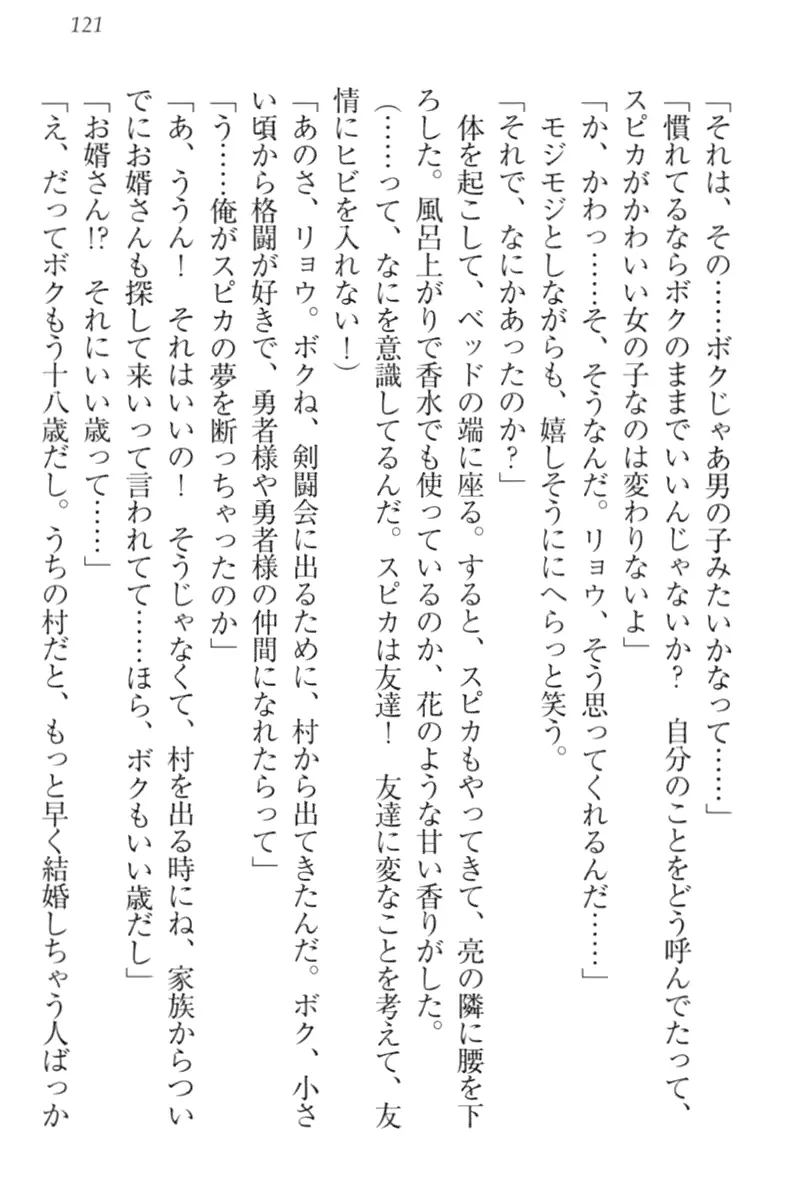 121
「それは、その……ボクじゃあ男の子みたいかなって……」
「慣れてるならボクのままでいいんじゃないか？　自分のことをどう呼んでたって、
スピカがかわいい女の子なのは変わりないよ」
「か、かわっ……そ、そうなんだ。リョウ、そう思ってくれるんだ……」
　モジモジとしながらも、嬉しそうににへらっと笑う。
「それで、なにかあったのか？」
　体を起こして、ベッドの端に座る。すると、スピカもやってきて、亮の隣に腰を下
ろした。風呂上がりで香水でも使っているのか、花のような甘い香りがした。
（……って、なにを意識してるんだ。スピカは友達！　友達に変なことを考えて、友
情にヒビを入れない！）
「あのさ、リョウ。ボクね、剣闘会に出るために、村から出てきたんだ。ボク、小さ
い頃から格闘が好きで、勇者様や勇者様の仲間になれたらって」
「う……俺がスピカの夢を断っちゃったのか」
「あ、ううん！　それはいいの！　そうじゃなくて、村を出る時にね、家族からつい
でにお婿さんも探して来いって言われてて……ほら、ボクもいい歳だし」
「お婿さん!?　それにいい歳って……」
「え、だってボクもう十八歳だし。うちの村だと、もっと早く結婚しちゃう人ばっか